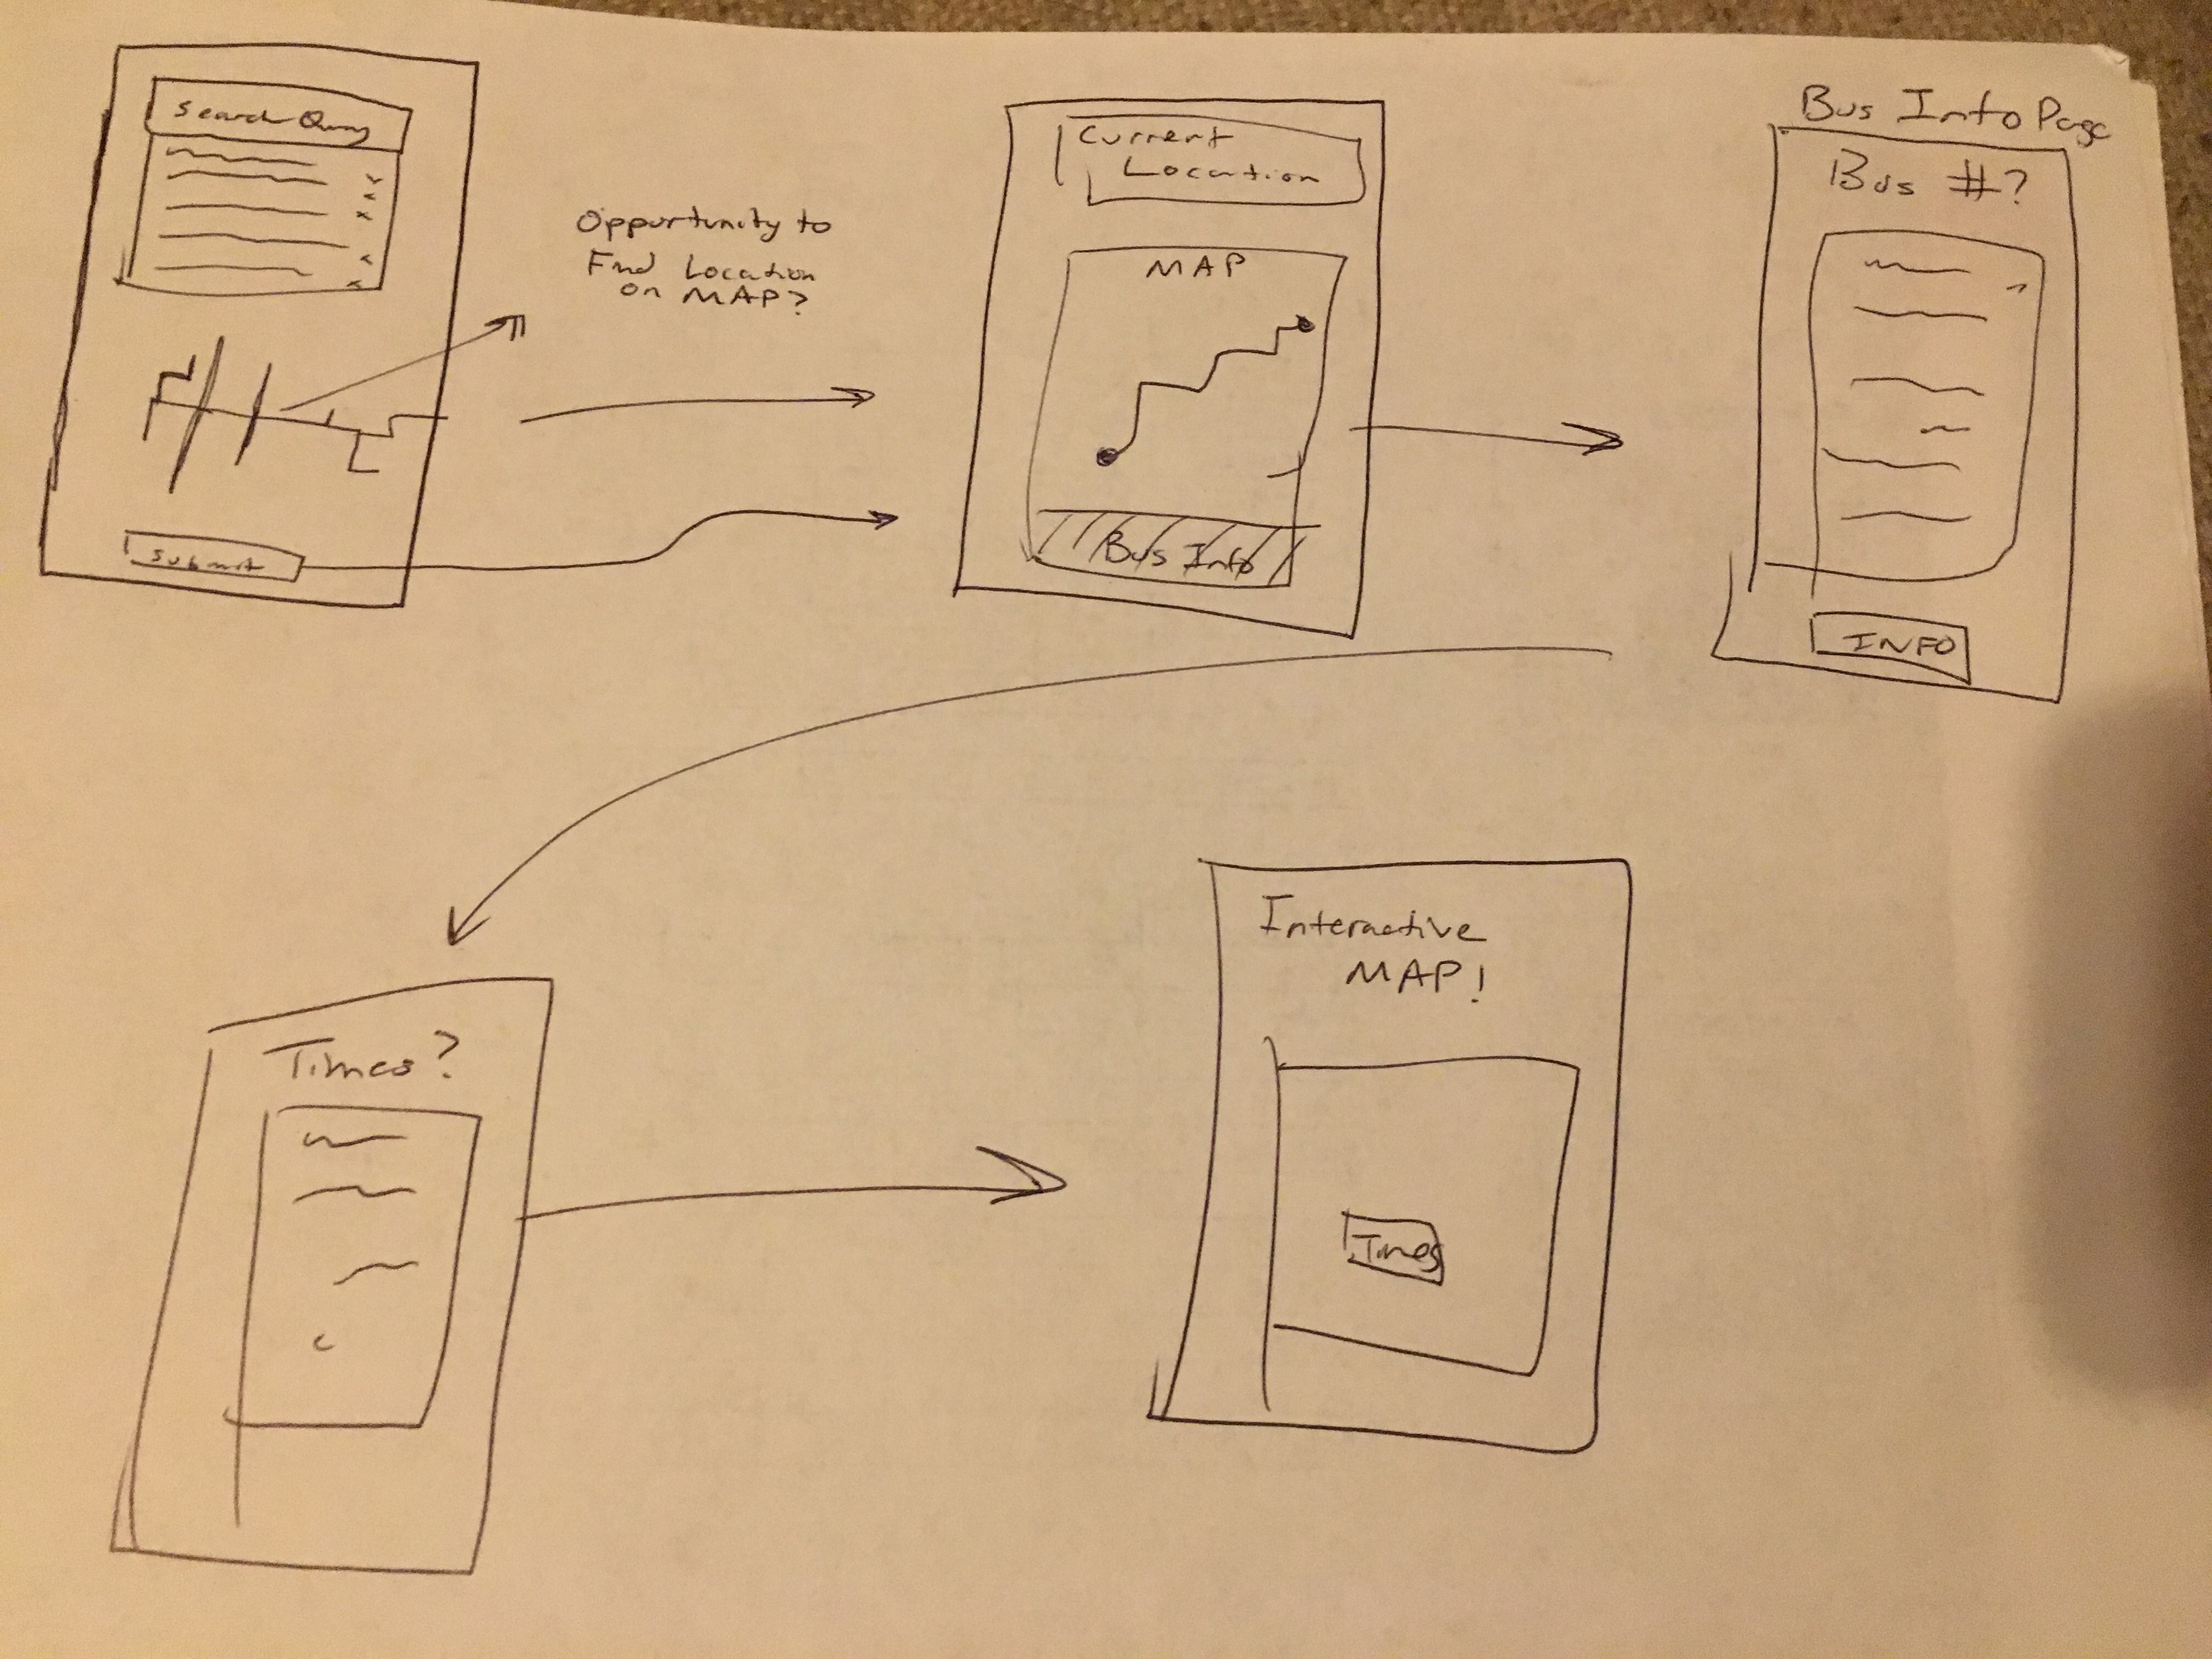 Search Query
Submit
Opportunity to
Find Location
on MAP?
Current
Location
MAP
Bus Info
Bus Info Page
Bus #?
INFO
Times?
Interactive
MAP!
Times